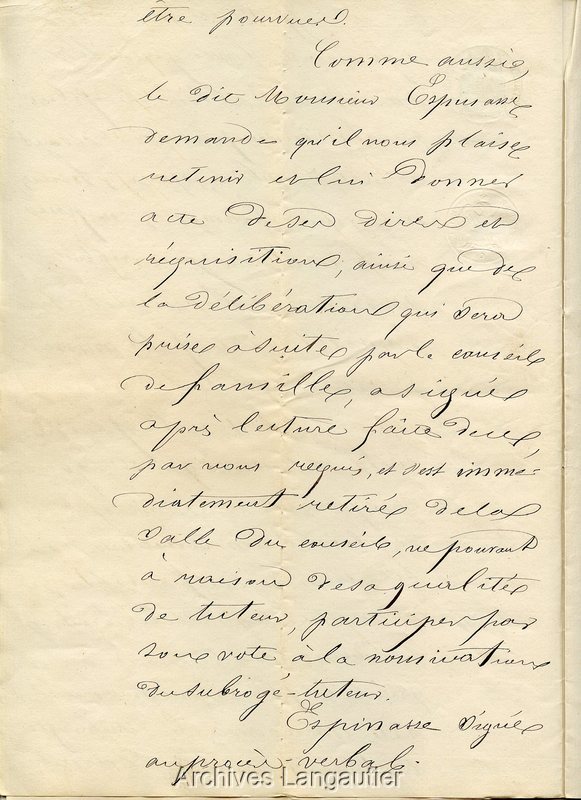 être pourvues.
Comme aussi,
le dit Monsieur Espinasse
demande qu'il nous plaise
retenir et lui donner
acte de ses dires et
réquisitions, ainsi que de
la délibération qui sera
prise à suite par le conseil
de famille, a signé
après lecture faite de ce,
par nous requis, et s'est immé-
diatement retiré de la
salle du conseil, ne pouvant
à raison de sa qualité
de tuteur, participer par
son vote à la nomination
du subrogé-tuteur.
Espinasse signé
au procès-verbal.
Archives Langautier